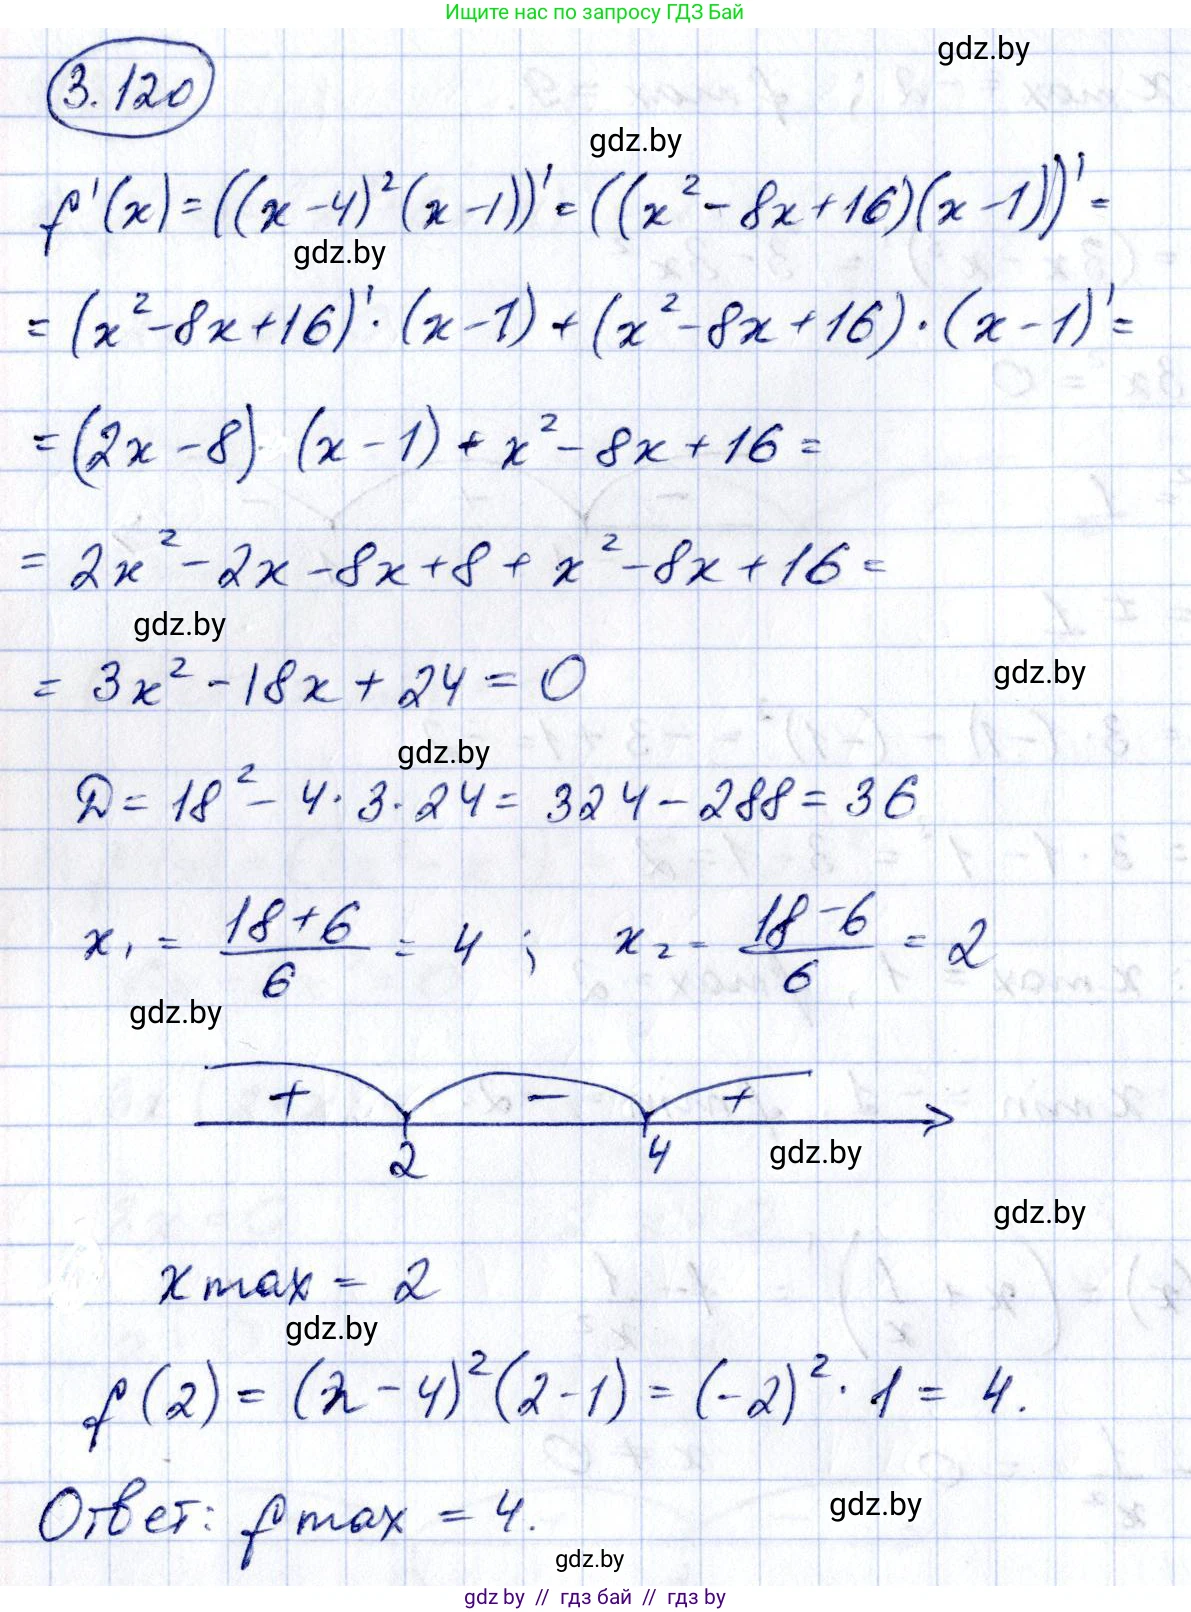 Ищите нас по запросу ГДЗ Бай
gdz.by
3.120
gdz.by
f'(x) = ((x-4)²(x-1))' = ((x²-8x+16)(x-1))' =
gdz.by
= (x²-8x+16)'·(x-1) + (x²-8x+16)·(x-1)' =
= (2x-8)·(x-1) + x²-8x+16 =
= 2x²-2x-8x+8+x²-8x+16 =
gdz.by
= 3x²-18x+24 = 0
gdz.by
gdz.by
D = 18²-4·3·24 = 324-288 = 36
x₁ = (18+6)/6 = 4 ; x₂ = (18-6)/6 = 2
gdz.by
+ - +
2 4
gdz.by
gdz.by
x max = 2
gdz.by
f(2) = (2-4)²(2-1) = (-2)²·1 = 4.
Ответ: f max = 4.
gdz.by
gdz.by
gdz by // гдз бай // gdz by